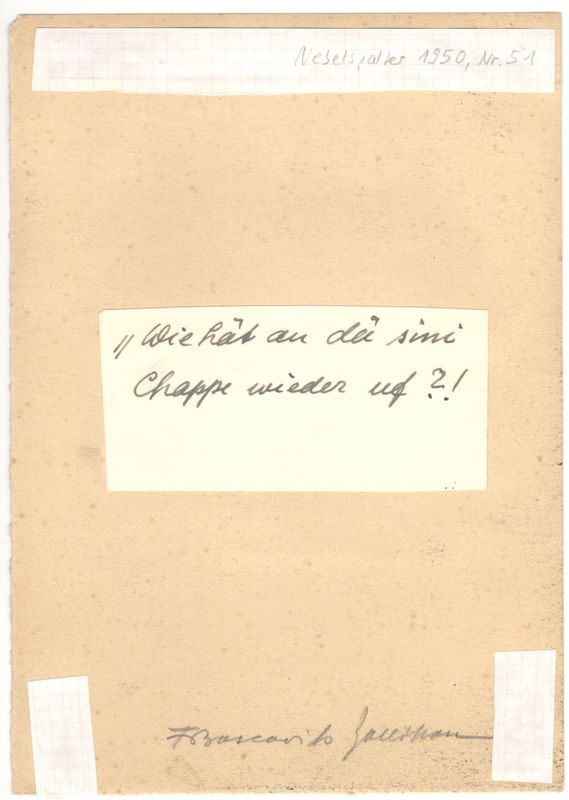 Nebelspalter 1950, Nr. 51
„Wie hät au dä sini
Chappe wieder uf?!
FBoscovits Zollikon